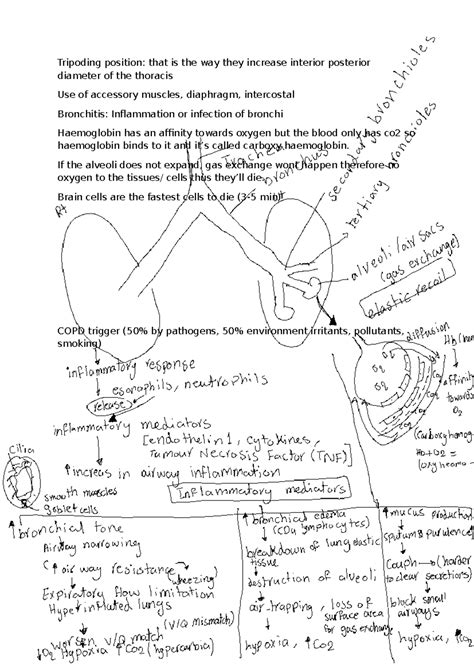 Tripoding position: that is the way they increase interior posterior
diameter of the thoracis
Use of accessory muscles, diaphragm, intercostal
Bronchitis: Inflammation or infection of bronchi
Haemoglobin has an affinity towards oxygen but the blood only has co2 so
haemoglobin binds to it and it's called carboxy haemoglobin.
If the alveoli does not expand, gas exchange wont happen therefore no
oxygen to the tissues/ cells thus they'll die
Brain cells are the fastest cells to die (3-5 min)
Rt
Trachea
bronchus
secondary bronchioles
tertiary bronchioles
alveoli/air sacs
(gas exchange)
elastic recoil
COPD trigger (50% by pathogens, 50% environment irritants, pollutants,
smoking)
diffusion
O2
O2
O2
CO2
affinity
towards
O2
Hb + O2 =
inflammatory response
neutrophils
release
inflammatory mediators
[endothelin1, cytokines,
Tumour Necrosis Factor (TNF)]
↑increas in airway inflammation
Inflammatory mediators
Cilia
smooth muscles
goblet cells
↑bronchial tone
Airway narrowing
(↑air way resistance
(wheezing)
Expiratory flow limitation
Hyperinflated lungs
(V/Q mismatch)
worsen V/Q match
↓O2 Hypoxia ↑CO2 (hypercarbia)
↑bronchial edema
(CD4 lymphocytes)
breakdown of lung elastic
tissue
destruction of alveoli
air-trapping, loss of
surface area
for gas exchange
hypoxia, ↑CO2
↑mucus production
sputum & purulence
Cough → (harder
to clear secretions)
block small
airways
hypoxia, ↑CO2